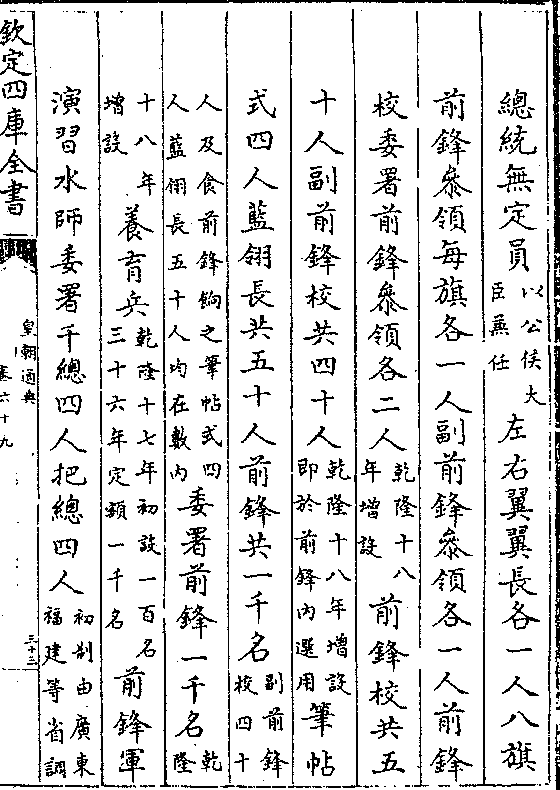 總統無定員以公侯大臣兼任左右翼翼長各一人八旗
前鋒叅領每旗各一人副前鋒叅領各一人前鋒
校委署前鋒叅領各二人乾隆十八年增設前鋒校共五
十人副前鋒校共四十人乾隆十八年增設即於前鋒內選用筆帖
式四人藍翎長共五十人前鋒共一千名副前鋒校四十
人及食前鋒餉之筆帖式四人藍翎長五十人均在數內委署前鋒一千名乾隆
十八年增設養育兵乾隆十七年初設一百名三十六年定額一千名前鋒軍
演習水師委署千總四人把總四人初制由廣東福建等省調
欽定四庫全書
皇朝通典
卷六十九
三十三